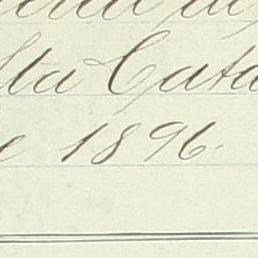 Sta Cata
e 1896.